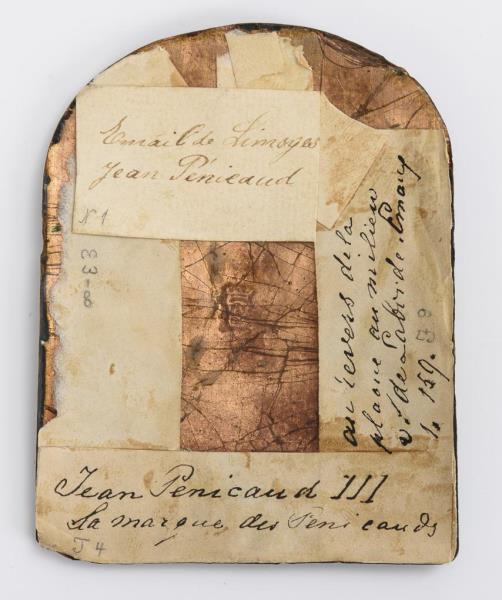 Email de Limoges
Jean Pénicaud
N 1
8-33
au revers de la
plaque au milieu
v. de Laborde. Emaux
1. 159.
Jean Penicaud III
La marque des Penicauds
J 4